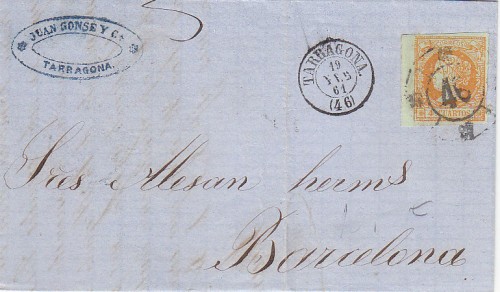 JUAN GONSE Y Cª
TARRAGONA.
TARRAGONA.
19
61
(46)
46
CUARTOS
Sres Alesan herms
Barcelona